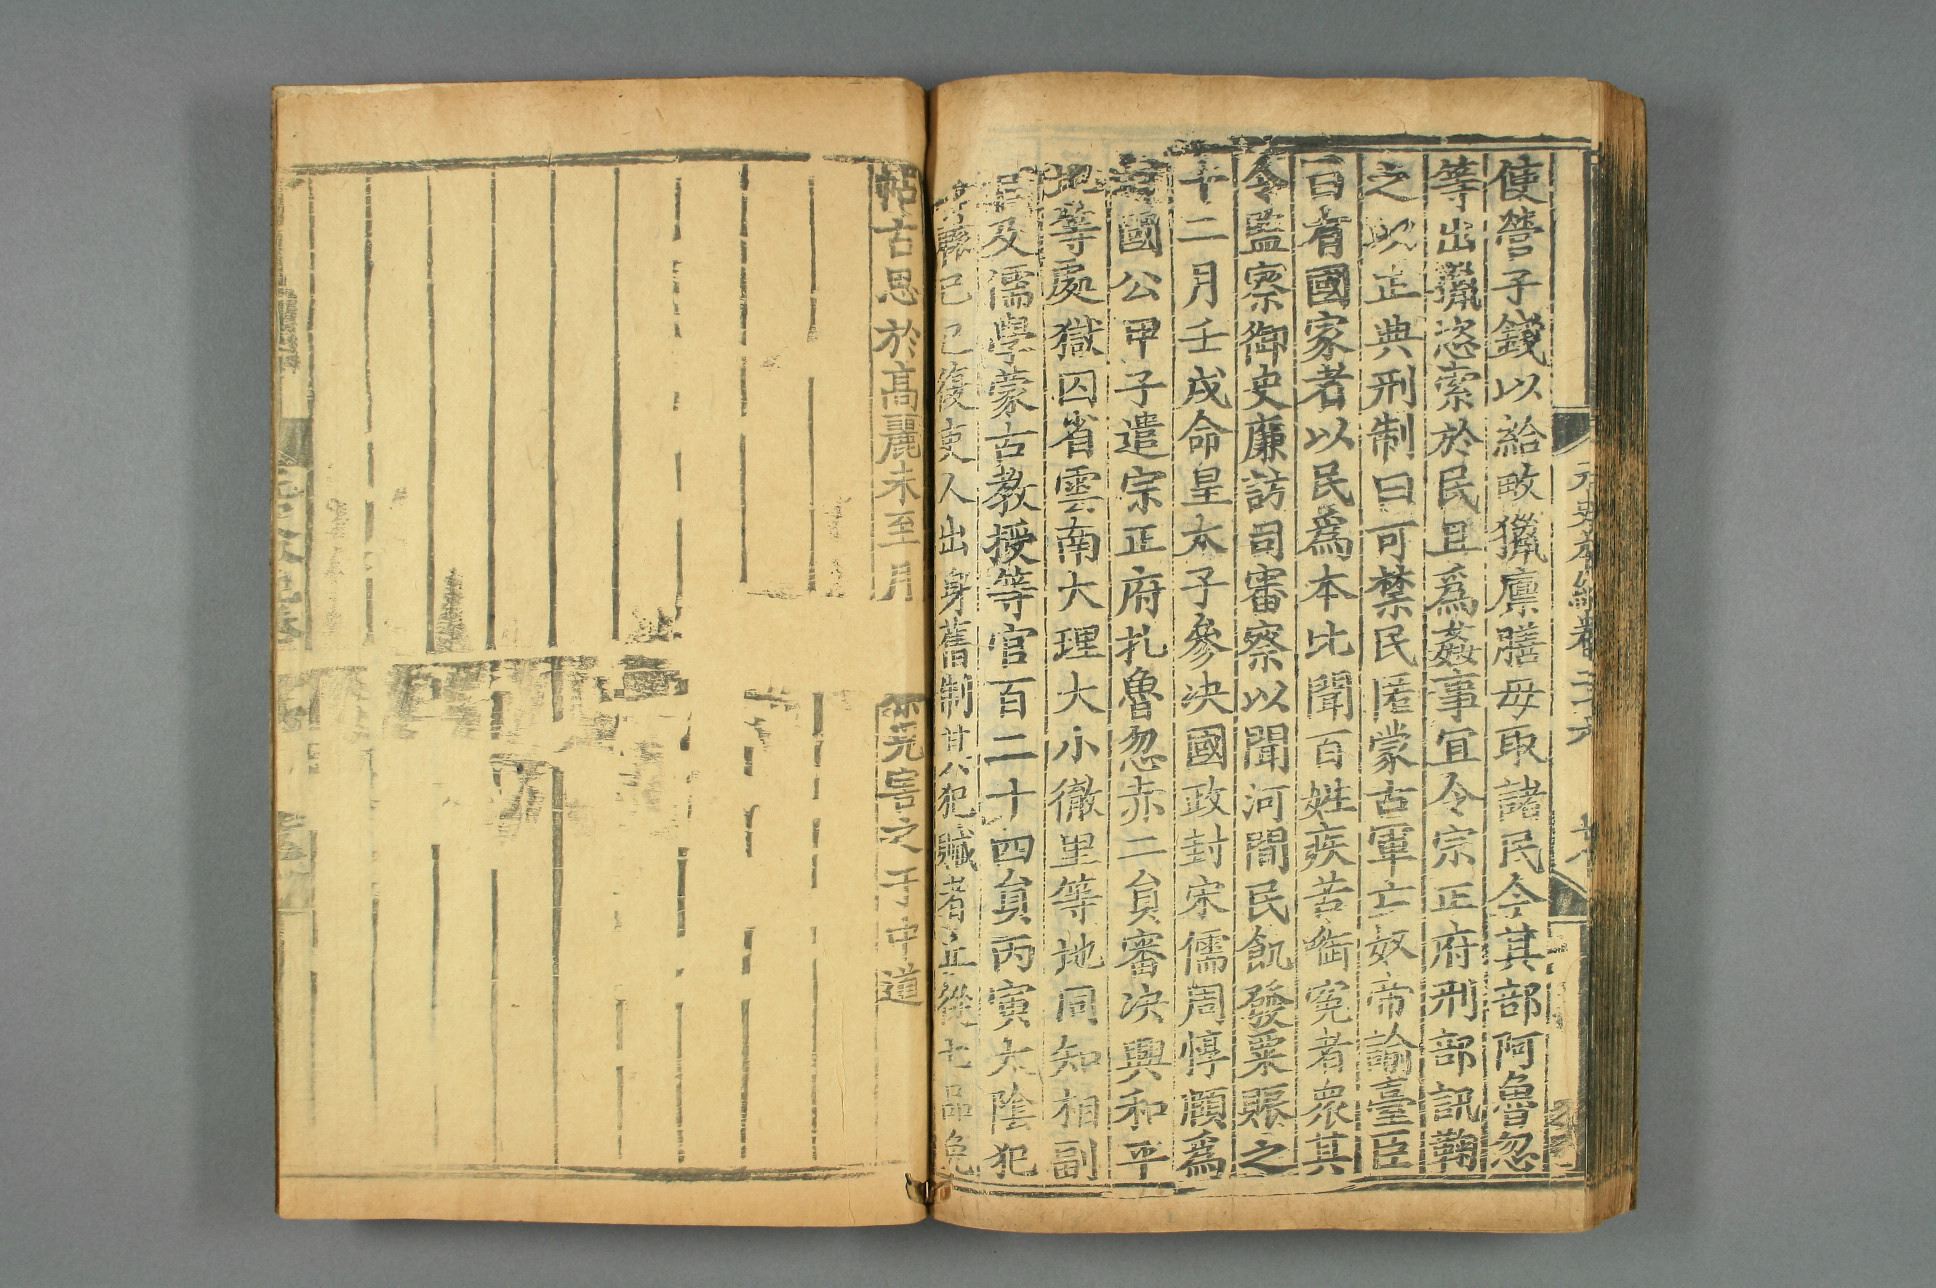 元史本紀卷二十六
使營子錢以給畋獵廪膳毋取諸民令其部阿魯忽
等出獵恣索於民且爲姦事宜令宗正府刑部訊鞫
之以正典刑制曰可禁民匿蒙古軍亡奴帝諭臺臣
曰有國家者以民爲本比聞百姓疾苦銜寃者衆其
令監察御史廉訪司審察以聞河間民飢發粟賑之
十二月壬戌命皇太子參决國政封宋儒周惇頤爲
國公甲子遣宗正府扎魯忽赤二員審决興和平
地等處獄囚省雲南大理大小徹里等地同知相副
官及儒學蒙古教授等官百二十四員丙寅太陰犯
己巳復吏人出身舊制其犯贓者止從七品
帖古思於高麗未至月
完害之于中道